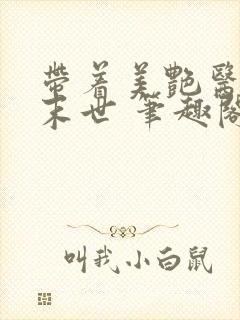 帶着美艷醫
末世 筆趣閣
叫我小白鼠